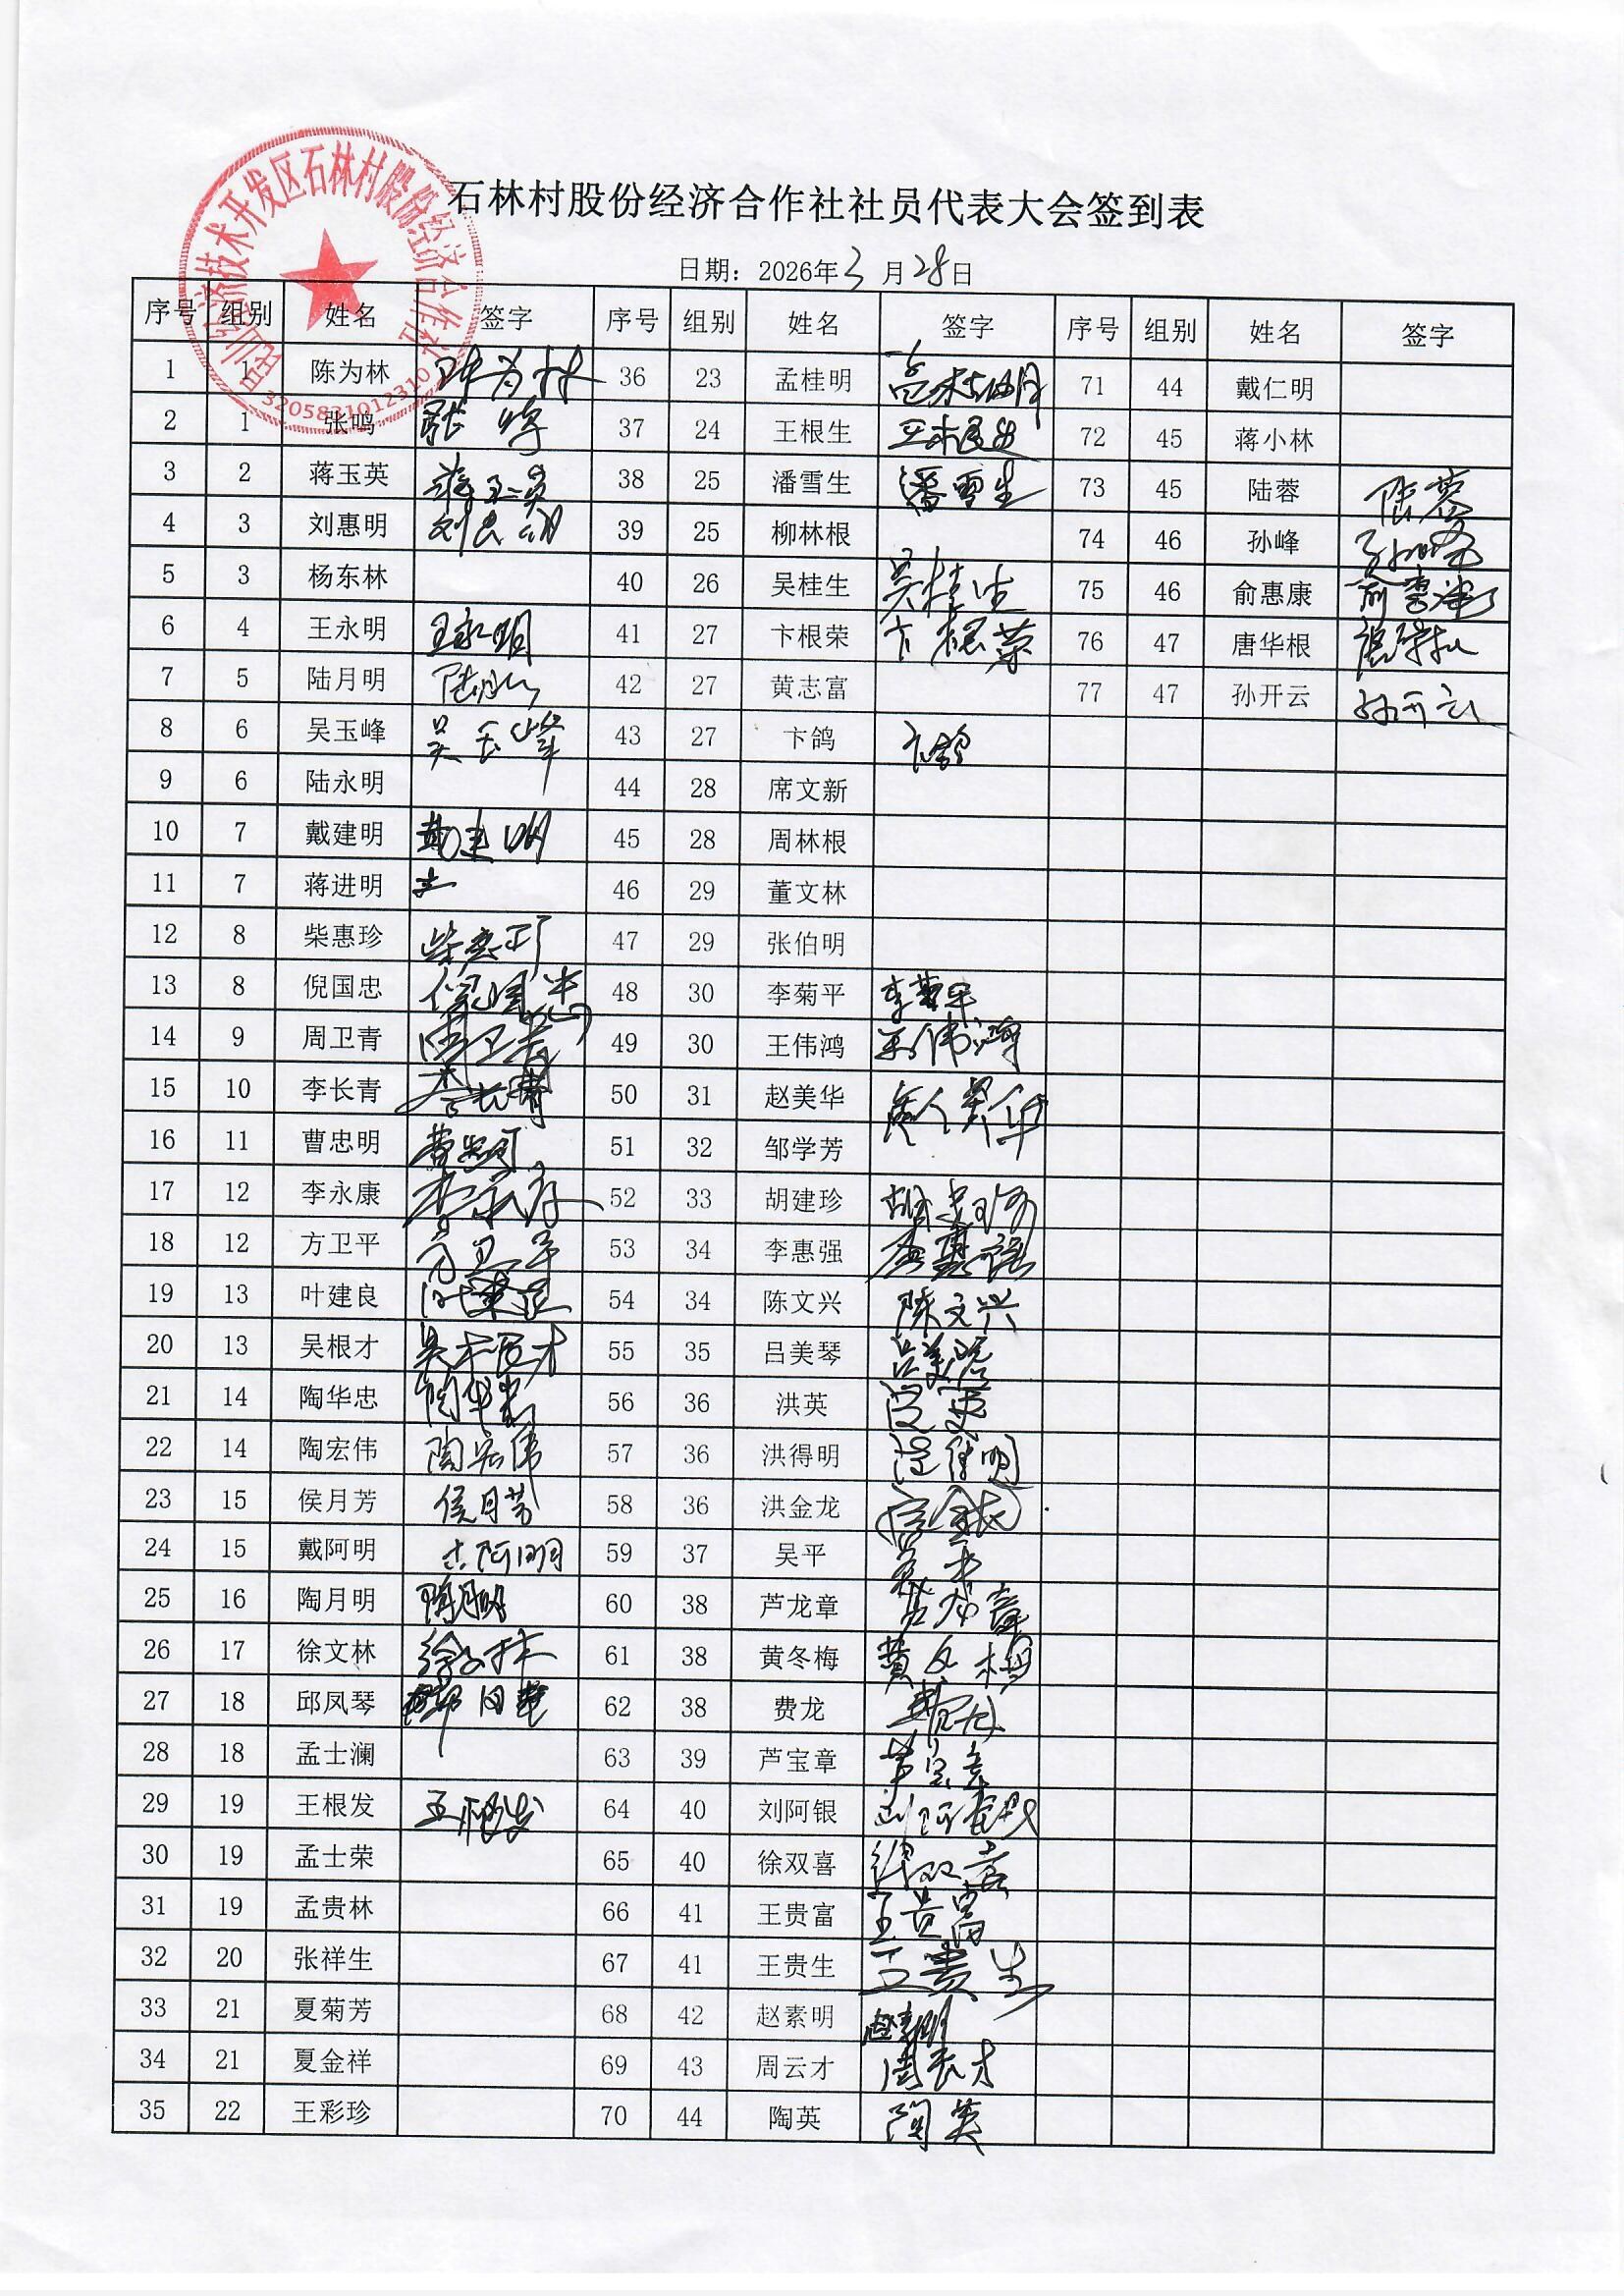 石林村股份经济合作社社员代表大会签到表
日期：2026年3月28日
昆山经济技术开发区石林村股份经济合作社
3205831012310
序号 组别 姓名 签字 序号 组别 姓名 签字 序号 组别 姓名 签字
1 1 陈为林 陈为林 36 23 孟桂明 孟桂明 71 44 戴仁明
2 1 张鸣 张鸣 37 24 王根生 王根生 72 45 蒋小林
3 2 蒋玉英 蒋玉英 38 25 潘雪生 潘雪生 73 45 陆蓉 陆蓉
4 3 刘惠明 刘惠明 39 25 柳林根 74 46 孙峰 孙峰
5 3 杨东林 40 26 吴桂生 吴桂生 75 46 俞惠康 俞惠康
6 4 王永明 王永明 41 27 卞根荣 卞根荣 76 47 唐华根 唐华根
7 5 陆月明 陆月明 42 27 黄志富 77 47 孙开云 孙开云
8 6 吴玉峰 吴玉峰 43 27 卞鸽 卞鸽
9 6 陆永明 44 28 席文新
10 7 戴建明 戴建明 45 28 周林根
11 7 蒋进明 46 29 董文林
12 8 柴惠珍 柴惠珍 47 29 张伯明
13 8 倪国忠 倪国忠 48 30 李菊平 李菊平
14 9 周卫青 周卫青 49 30 王伟鸿 王伟鸿
15 10 李长青 李长青 50 31 赵美华 赵美华
16 11 曹忠明 曹忠明 51 32 邹学芳
17 12 李永康 李永康 52 33 胡建珍 胡建珍
18 12 方卫平 方卫平 53 34 李惠强 李惠强
19 13 叶建良 叶建良 54 34 陈文兴 陈文兴
20 13 吴根才 吴根才 55 35 吕美琴 吕美琴
21 14 陶华忠 陶华忠 56 36 洪英 洪英
22 14 陶宏伟 陶宏伟 57 36 洪得明 洪得明
23 15 侯月芳 侯月芳 58 36 洪金龙 洪金龙
24 15 戴阿明 阿明 59 37 吴平 吴平
25 16 陶月明 陶月明 60 38 芦龙章 芦龙章
26 17 徐文林 徐文林 61 38 黄冬梅 黄冬梅
27 18 邱凤琴 62 38 费龙 费龙
28 18 孟士澜 63 39 芦宝章 芦宝章
29 19 王根发 王根发 64 40 刘阿银 刘阿银
30 19 孟士荣 65 40 徐双喜 徐双喜
31 19 孟贵林 66 41 王贵富 王贵富
32 20 张祥生 67 41 王贵生 王贵生
33 21 夏菊芳 68 42 赵素明 赵素明
34 21 夏金祥 69 43 周云才 周云才
35 22 王彩珍 70 44 陶英 陶英